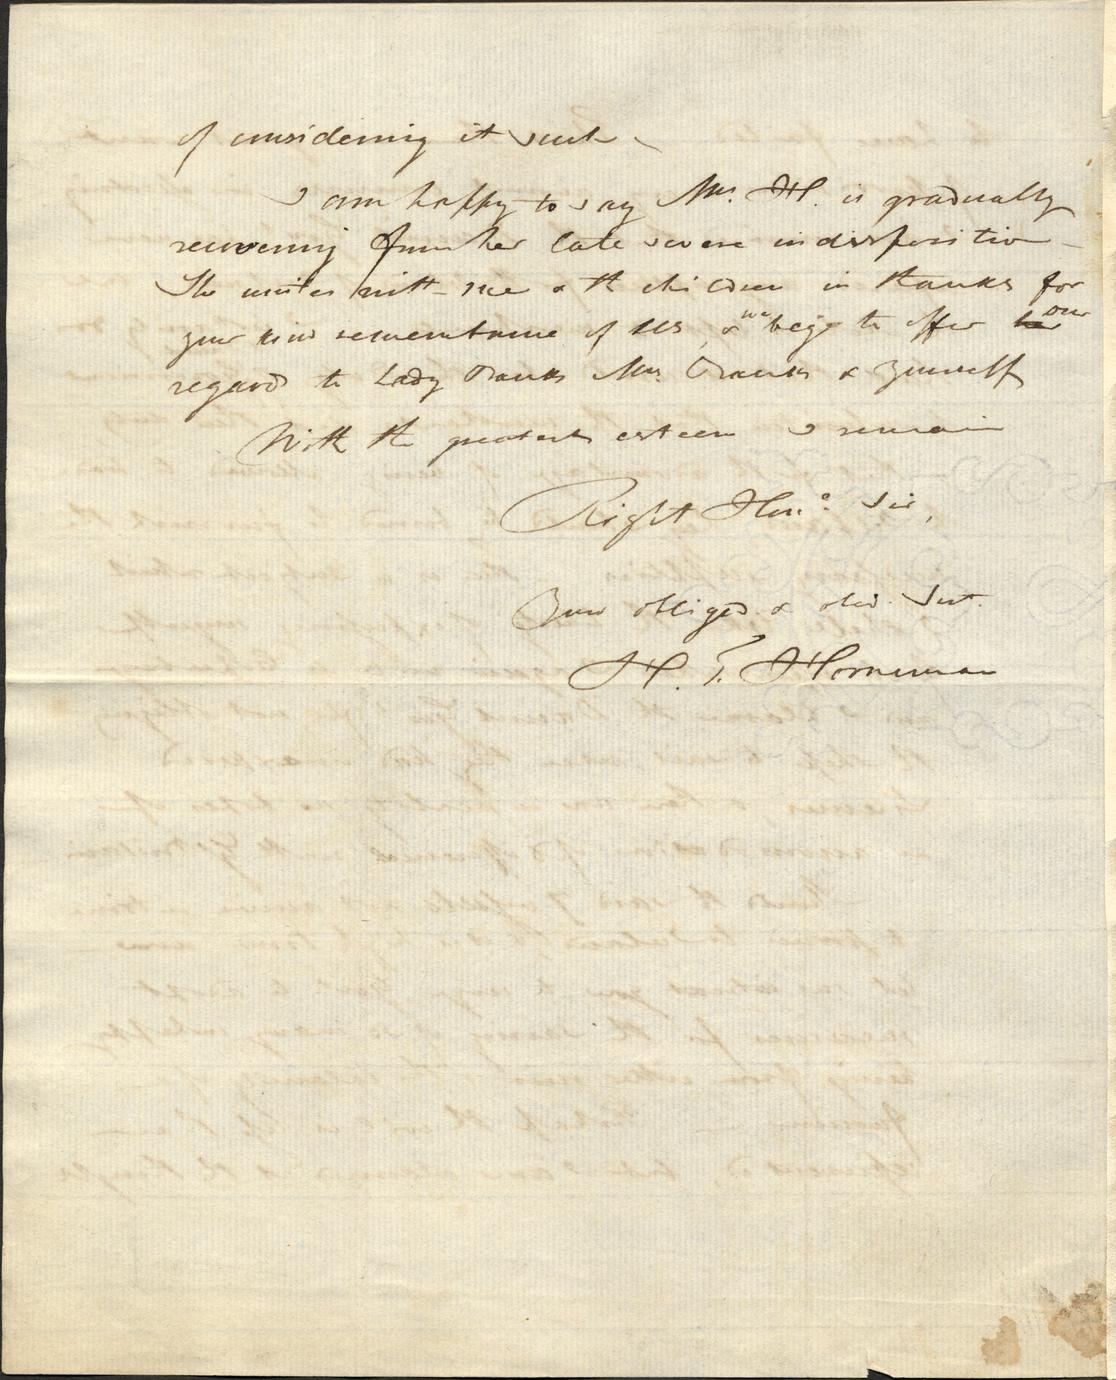 of considering it such
I am happy to say Mrs. H. is gradually
recovering from her late severe indisposition –
She unites with me & the children in thanks for
your kind remembrance of us, & we beg to offer her our
regards to Lady Banks Mrs. Banks & yourself
With the greatest esteem I remain
Right Hon.e Sir,
Your obliged & obed. Servt.
H. F. Horneman